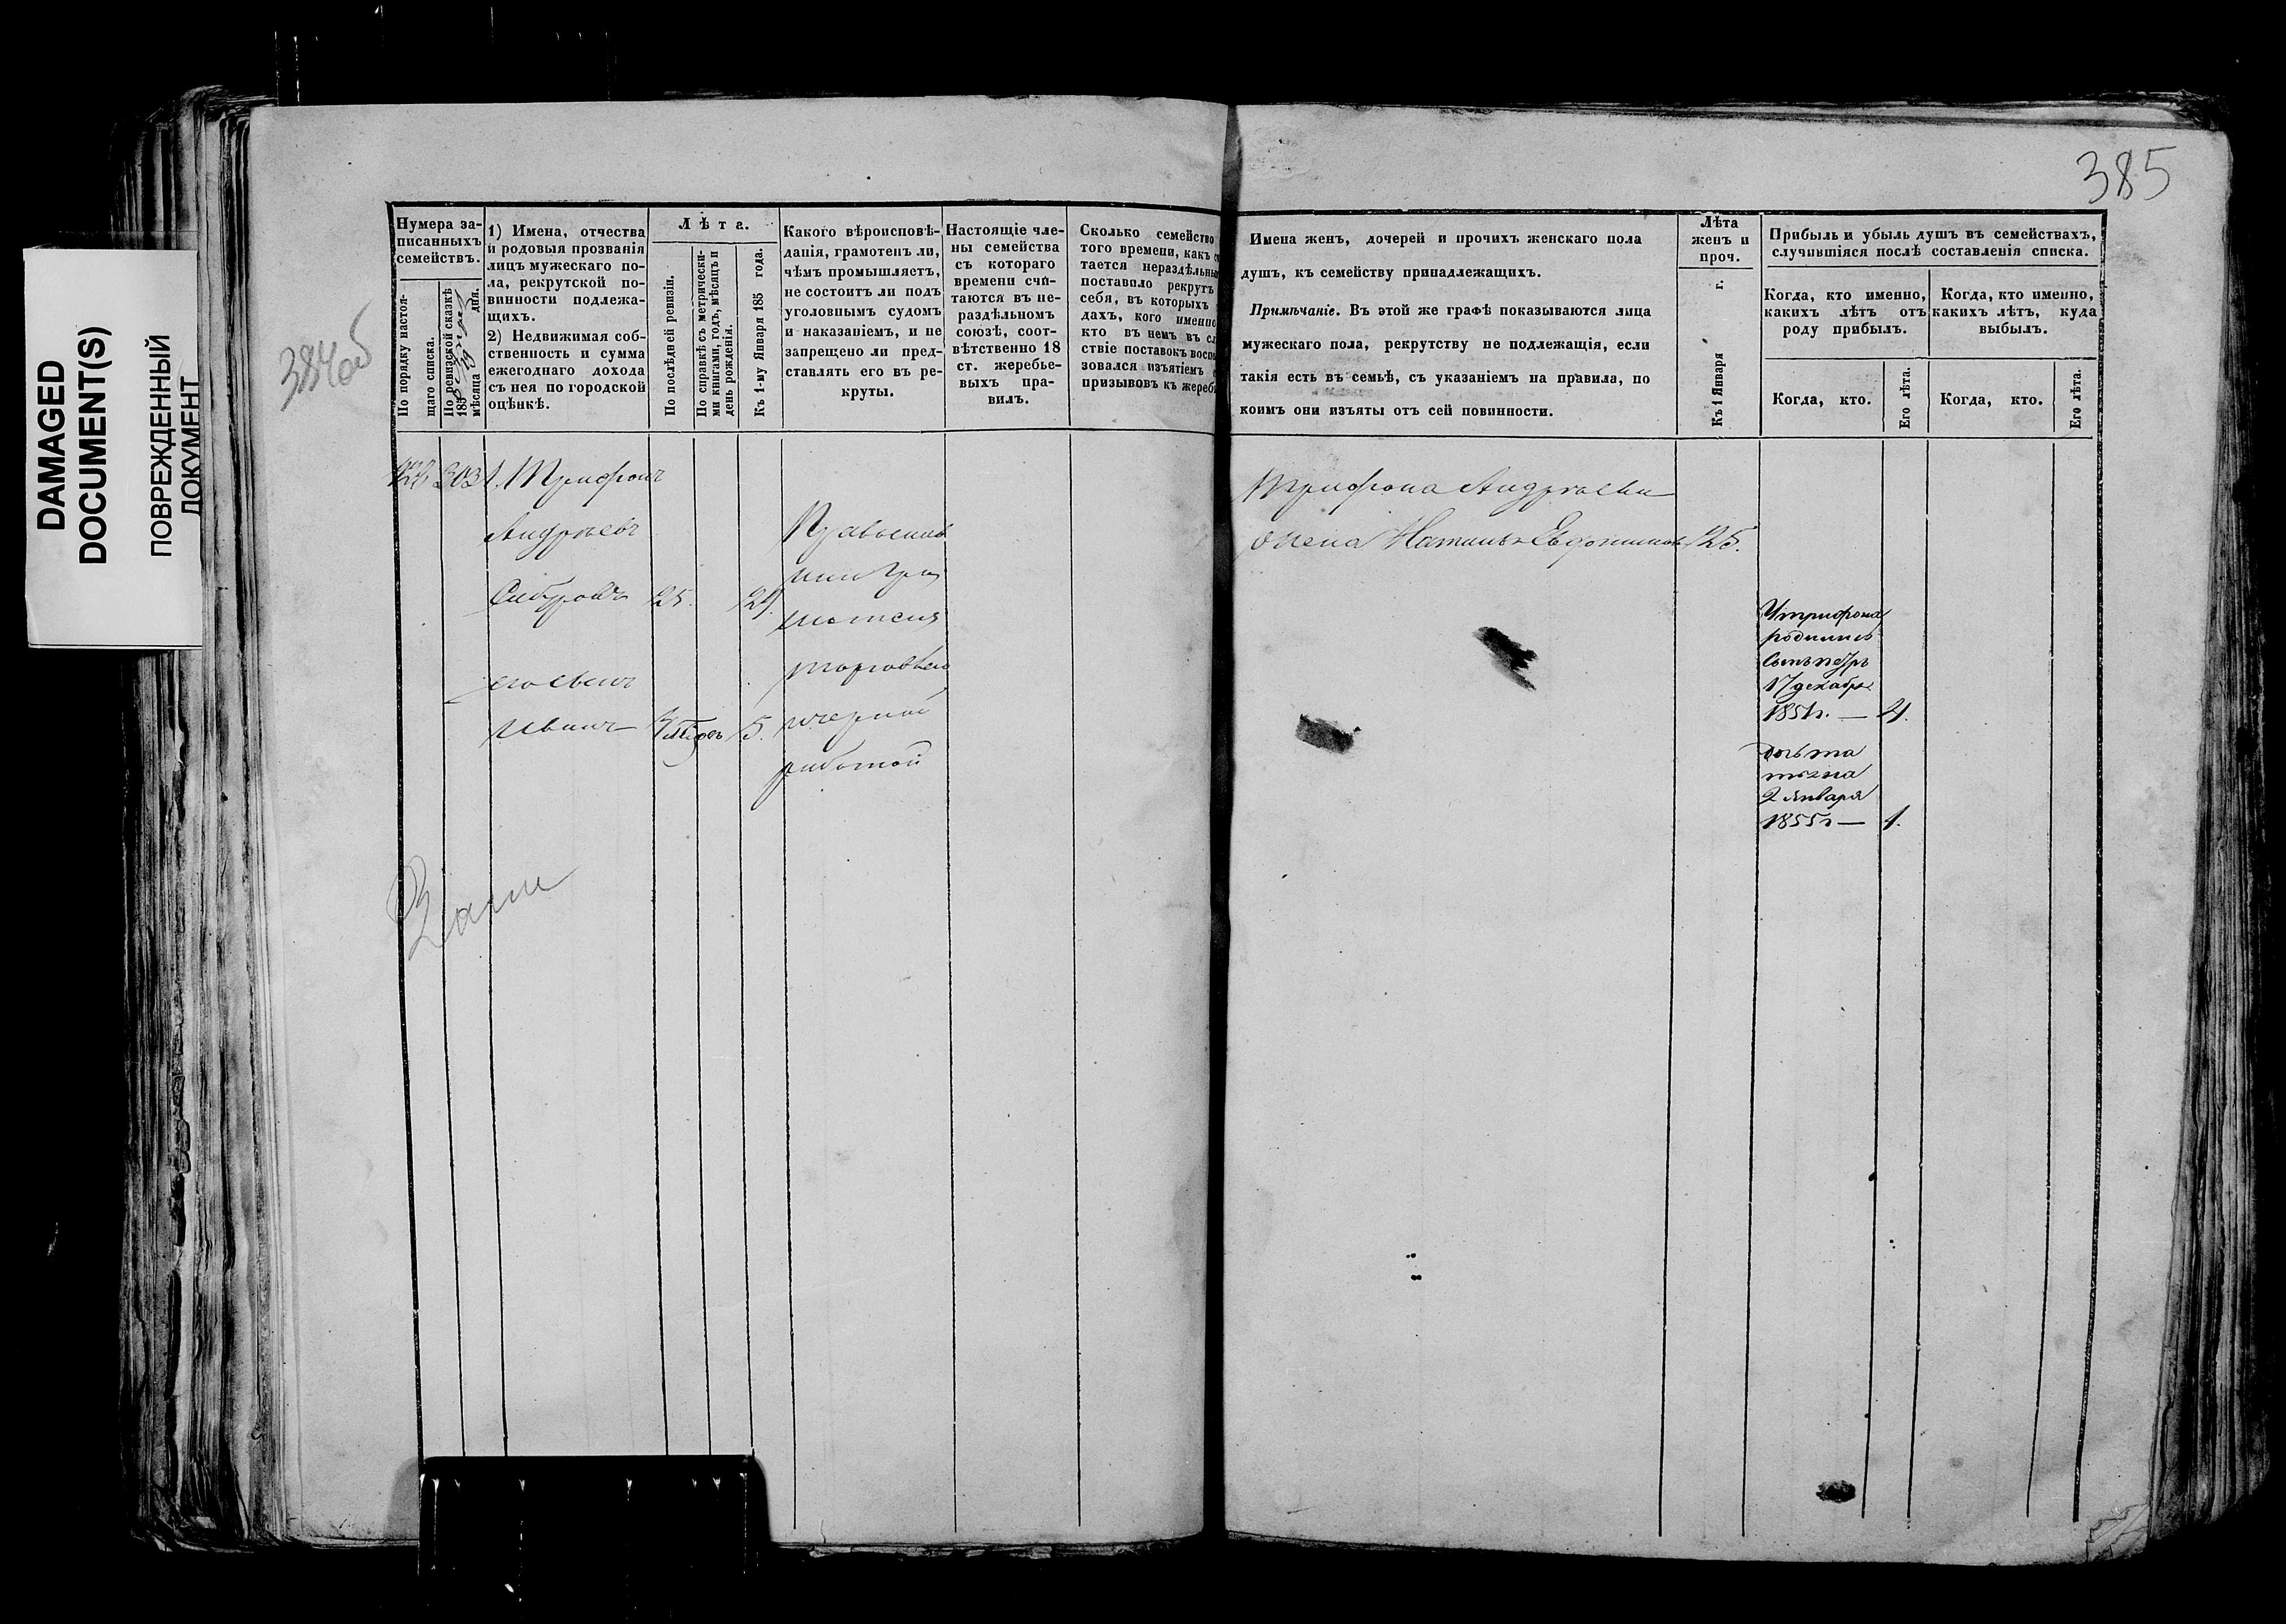 DAMAGED
DOCUMENT(S)
ПОВРЕЖДЕННЫЙ
ДОКУМЕНТ
384об
385
Нумера за-
писанныхъ
семействъ.
По порядку настоя-
щаго списка.
По ревизской сказкѣ
185
мѣсяца 19 дня.
1) Имена, отчества
и родовыя прозванія
лицъ мужескаго по-
ла, рекрутской по-
винности подлежа-
щихъ.
2) Недвижимая соб-
ственность и сумма
ежегоднаго дохода
съ нея по городской
оцѣнкѣ.
Лѣта.
По послѣдней ревизіи.
По справкѣ съ метрически-
ми книгами, годъ, мѣсяцъ и
день рожденія.
Къ 1-му Января 185 года.
Какого вѣроисповѣ-
данія, грамотенъ ли,
чѣмъ промышляетъ,
не состоитъ ли подъ
уголовнымъ судомъ
и наказаніемъ, и не
запрещено ли пред-
ставлять его въ ре-
круты.
Настоящіе чле-
ны семейства
съ котораго
времени счи-
таются въ не-
раздѣльномъ
союзѣ, соот-
вѣтственно 18
ст. жеребье-
выхъ пра-
вилъ.
Сколько семейство
того времени, какъ
тается нераздѣльны
поставило рекрутъ
себя, въ которыхъ
дахъ, кого именно
кто въ немъ въ сл
ствіе поставокъ воспо
зовался изъятіемъ
призывовъ къ жереб
Имена женъ, дочерей и прочихъ женскаго пола
душъ, къ семейству принадлежащихъ.
Примѣчаніе. Въ этой же графѣ показываются лица
мужескаго пола, рекрутству не подлежащія, если
такія есть въ семьѣ, съ указаніемъ на правила, по
коимъ они изъяты отъ сей повинности.
Лѣта
женъ и
проч.
Къ 1 Января г.
Прибыль и убыль душъ въ семействахъ,
случившіяся послѣ составленія списка.
Когда, кто именно,
какихъ лѣтъ отъ
роду прибылъ.
Когда, кто именно,
какихъ лѣтъ, куда
выбылъ.
Когда, кто.
Его лѣта.
Когда, кто.
Его лѣта.
303 1. Трифонъ
Андреевъ
25. 29.
его сынъ
Иванъ 5.
торговлею
и черной
работой
Трифона Андреева
жена 25.
У трифона
родились
сынъ петръ
17 декабря
1851г. — 4.
дочь та
тьяна
2 января
1855г — 1.